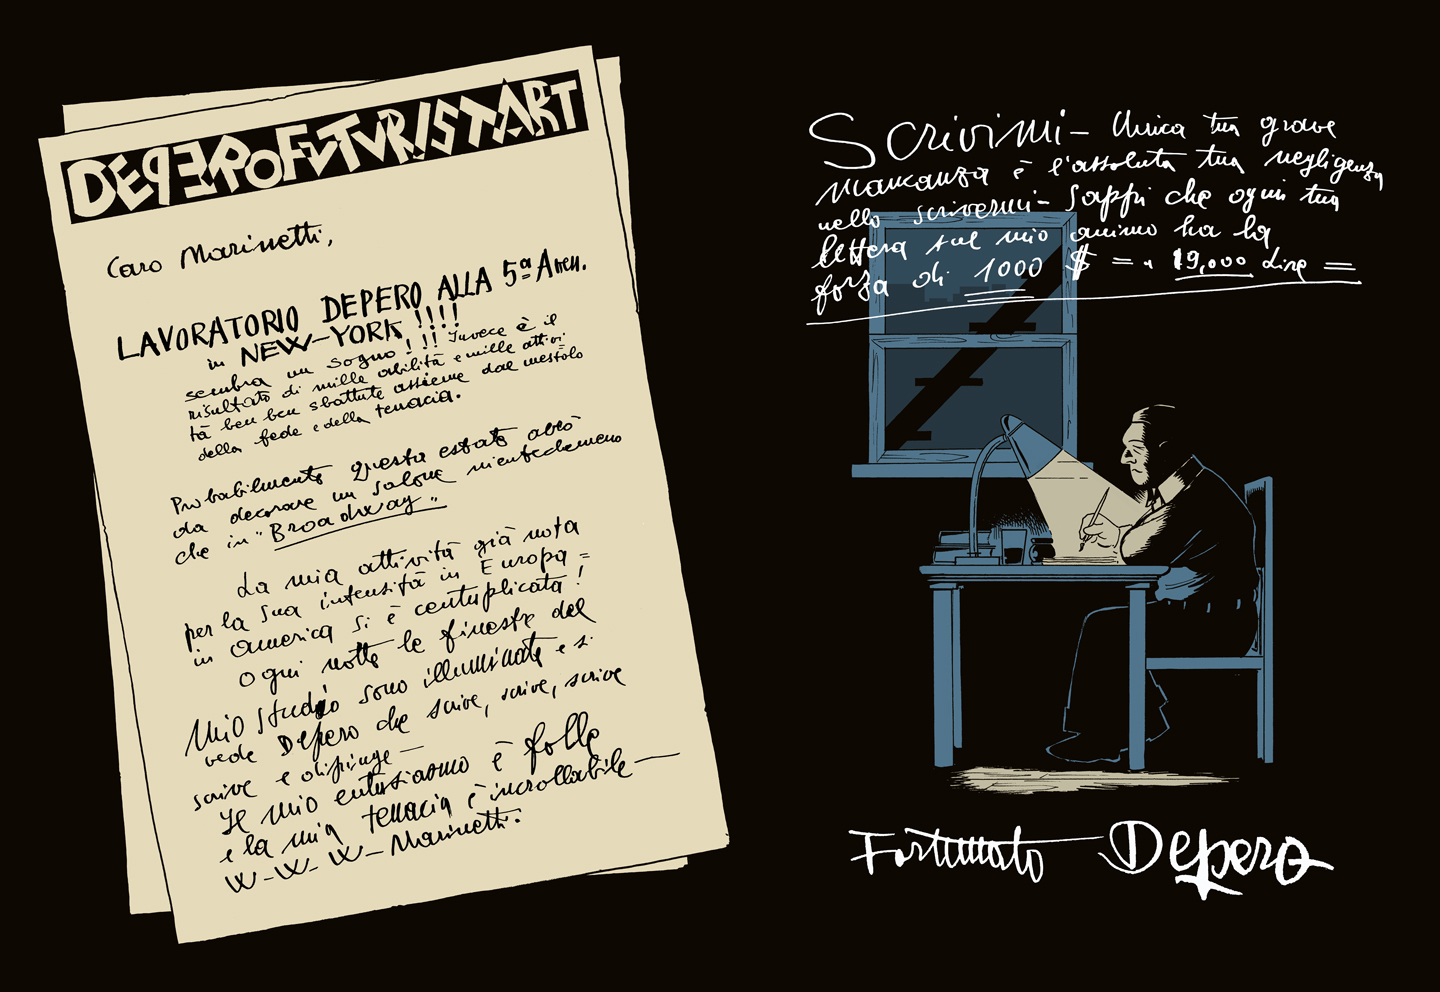 DEPEROFUTURISTART
Caro Marinetti,
LAVORATORIO DEPERO ALLA 5ª Aven.
in NEW-YORK !!!!
sembra un sogno!!! Invece è il
risultato di mille abilità e mille attivi
tà ben ben sbattute assieme dal mestolo
della fede e della tenacia.
Probabilmente questa estate avrò
da decorare un salone nientedimeno
che in "Broadway".
La mia attività già nota
per la sua intensità in Europa =
in America si è centuplicata!
Ogni notte le finestre del
mio studio sono illuminate e si
vede Depero che scrive, scrive, scrive
scrive e dipinge —
Il mio entusiasmo è folle
e la mia tenacia è incrollabile —
W-W-W- Marinetti.
Scrivimi - Unica tua grave
mancanza è l'assoluta tua negligenza
nello scrivermi - Sappi che ogni tua
lettera sul mio animo ha la
forza di 1000 $ = a 19,000 Lire =
Fortunato Depero